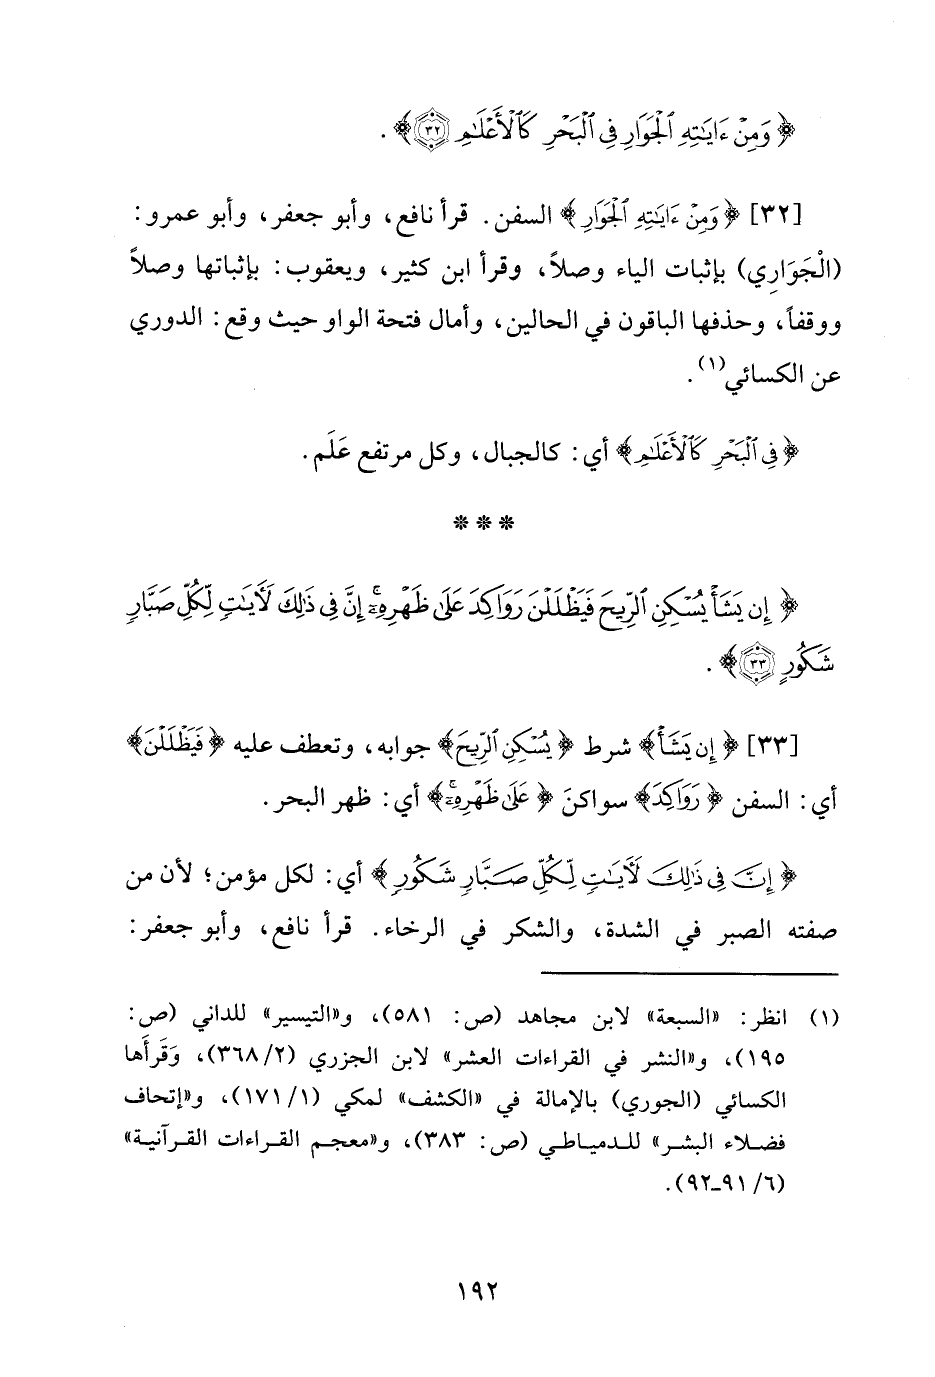 ﴿ وَمِنْ ءَايَـٰتِهِ ٱلْجَوَارِ فِى ٱلْبَحْرِ كَٱلْأَعْلَـٰمِ ٣٢﴾ .
[٣٢] ﴿ وَمِنْ ءَايَـٰتِهِ ٱلْجَوَارِ ﴾ السفن. قرأ نافع، وأبو جعفر، وأبو عمرو:
(الْجَوَارِي) بإثبات الياء وصلاً، وقرأ ابن كثير، ويعقوب: بإثباتها وصلاً
ووقفاً، وحذفها الباقون في الحالين، وأمال فتحة الواو حيث وقع: الدوري
عن الكسائي(١).
﴿ فِى ٱلْبَحْرِ كَٱلْأَعْلَـٰمِ ﴾ أي: كالجبال، وكل مرتفع عَلَم.
* * *
﴿ إِن يَشَأْ يُسْكِنِ ٱلرِّيحَ فَيَظْلَلْنَ رَوَاكِدَ عَلَىٰ ظَهْرِهِۦٓ ۚ إِنَّ فِى ذَٰلِكَ لَـَٔايَـٰتٍ لِّكُلِّ صَبَّارٍ
شَكُورٍ ٣٣﴾ .
[٣٣] ﴿ إِن يَشَأْ ﴾ شرط ﴿ يُسْكِنِ ٱلرِّيحَ ﴾ جوابه، وتعطف عليه ﴿ فَيَظْلَلْنَ ﴾
أي: السفن ﴿ رَوَاكِدَ ﴾ سواكنَ ﴿ عَلَىٰ ظَهْرِهِۦٓ ۚ ﴾ أي: ظهر البحر.
﴿ إِنَّ فِى ذَٰلِكَ لَـَٔايَـٰتٍ لِّكُلِّ صَبَّارٍ شَكُورٍ ﴾ أي: لكل مؤمن؛ لأن من
صفته الصبر في الشدة، والشكر في الرخاء. قرأ نافع، وأبو جعفر:
(١) انظر: «السبعة» لابن مجاهد (ص: ٥٨١)، و«التيسير» للداني (ص:
١٩٥)، و«النشر في القراءات العشر» لابن الجزري (٢/ ٣٦٨)، وَقَرأَها
الكسائي (الجوري) بالإمالة في «الكشف» لمكي (١/ ١٧١)، و«إتحاف
فضلاء البشر» للدمياطي (ص: ٣٨٣)، و«معجم القراءات القرآنية»
(٦/ ٩١ـ٩٢).
١٩٢